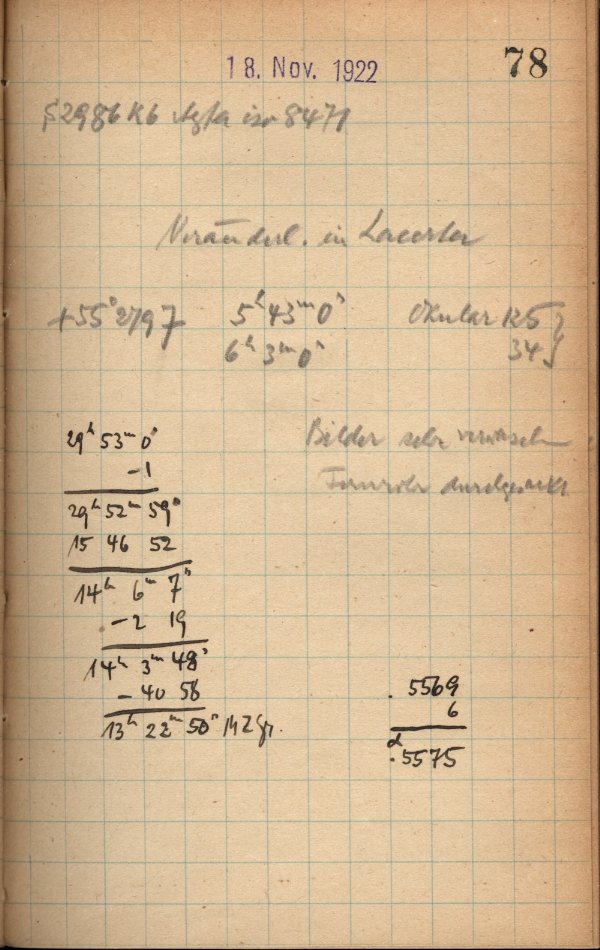 18. Nov. 1922
78
2986 K6 Agfa iso 8471
Veränderl. in Lacerta
+55° 2797 5ʰ 43ᵐ 0ˢ Okular 125 }
6ʰ 3ᵐ 0ˢ 34 }
Bilder sehr verwaschen
Fernrohr
29ʰ 53ᵐ 0ˢ
-1
29ʰ 52ᵐ 59ˢ
15 46 52
14ʰ 6ᵐ 7ˢ
-2 19
14ʰ 3ᵐ 48ˢ
-40 58
13ʰ 22ᵐ 50ˢ MZGr.
.5569
6
d
.5575